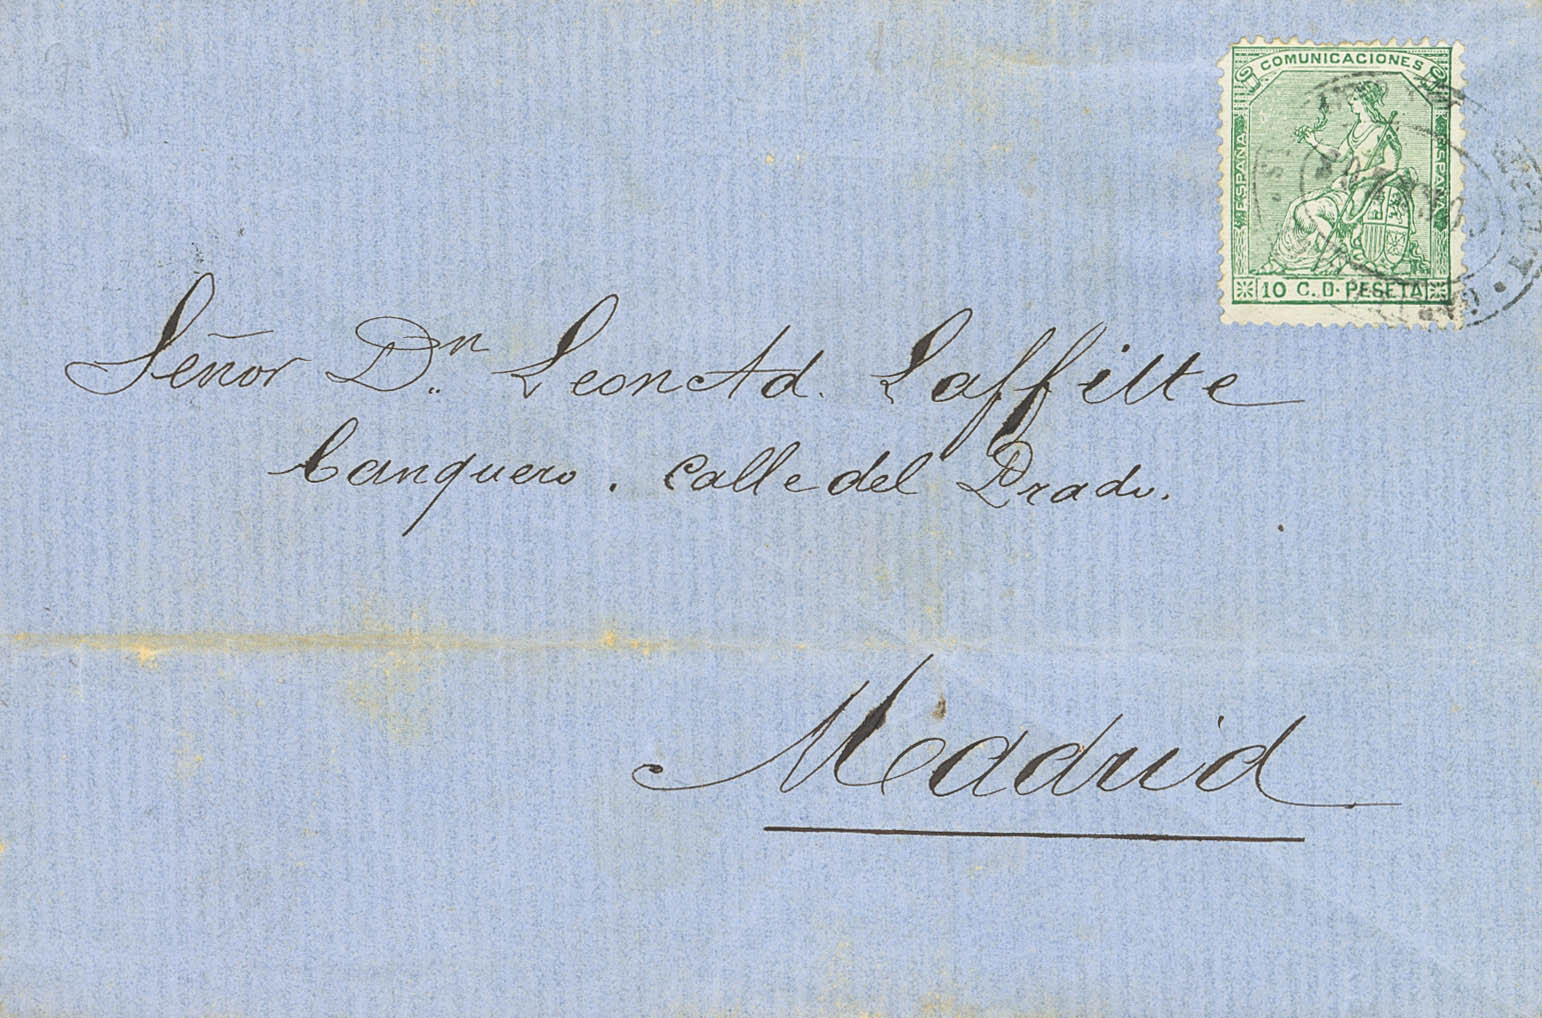 COMUNICACIONES
ESPAÑA
ESPAÑA
10 C. D. PESETA
Señor Dn. Leon Ad. Laffitte
banquero. Calle del Prado.
Madrid